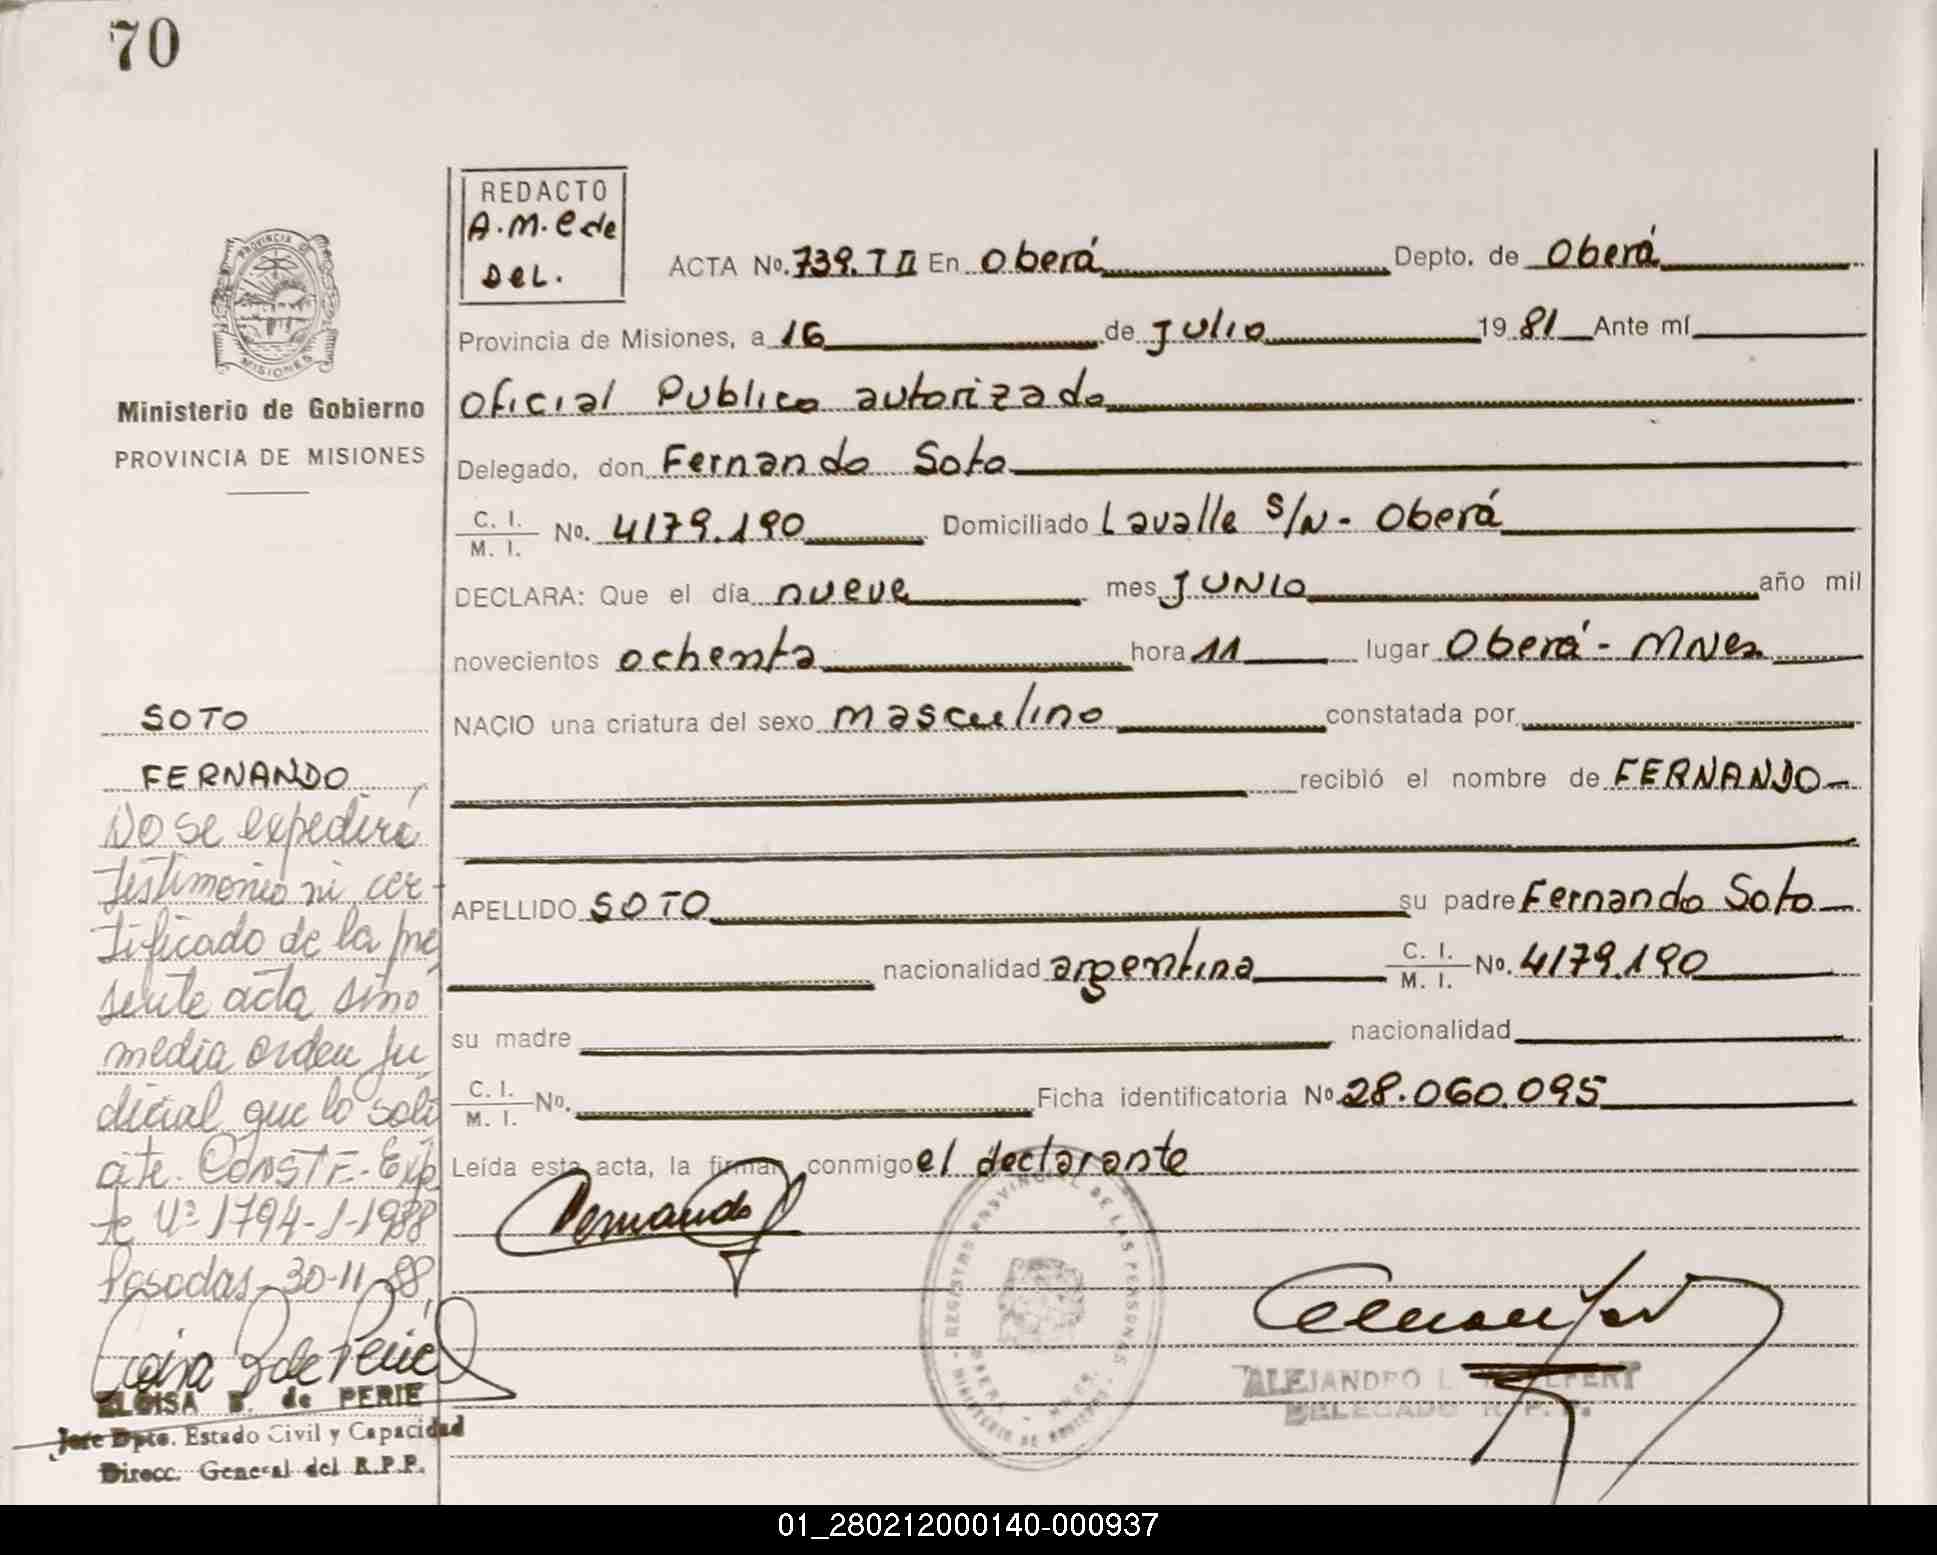 70
REDACTO
A.M.E de
DEL.
ACTA No. 739. T II En Oberá Depto. de Oberá
Provincia de Misiones, a 16 de Julio 19 81 Ante mí
Oficial Publico autorizado
Delegado, don Fernando Soto
C. I. / M. I. No. 4179.190 Domiciliado Lavalle S/N - Oberá
DECLARA: Que el día nueve mes JUNIO año mil
novecientos ochenta hora 11 lugar Oberá - MNes
NACIO una criatura del sexo masculino constatada por
recibió el nombre de FERNANDO
APELLIDO SOTO su padre Fernando Soto
nacionalidad argentina C. I. / M. I. No. 4179.190
su madre nacionalidad
C. I. / M. I. No. Ficha identificatoria No 28.060.095
Leída esta acta, la firman conmigo el declarante
Fernando
REGISTRO PROVINCIAL DE LAS PERSONAS
ALEJANDRO L.
DELEGADO R. P. P.
PROVINCIA DE
MISIONES
Ministerio de Gobierno
PROVINCIA DE MISIONES
SOTO
FERNANDO
No se expedirá
testimonio ni cer-
tificado de la pre
sente acta sino
media orden ju
dicial que lo soli
cite. CONSTE- Exp
te Nº 1794-J-1988
Posadas, 30-11-88,
ELOISA B. de PERIE
Jefe Dpto. Estado Civil y Capacidad
Direcc. General del R.P.P.
01_280212000140-000937